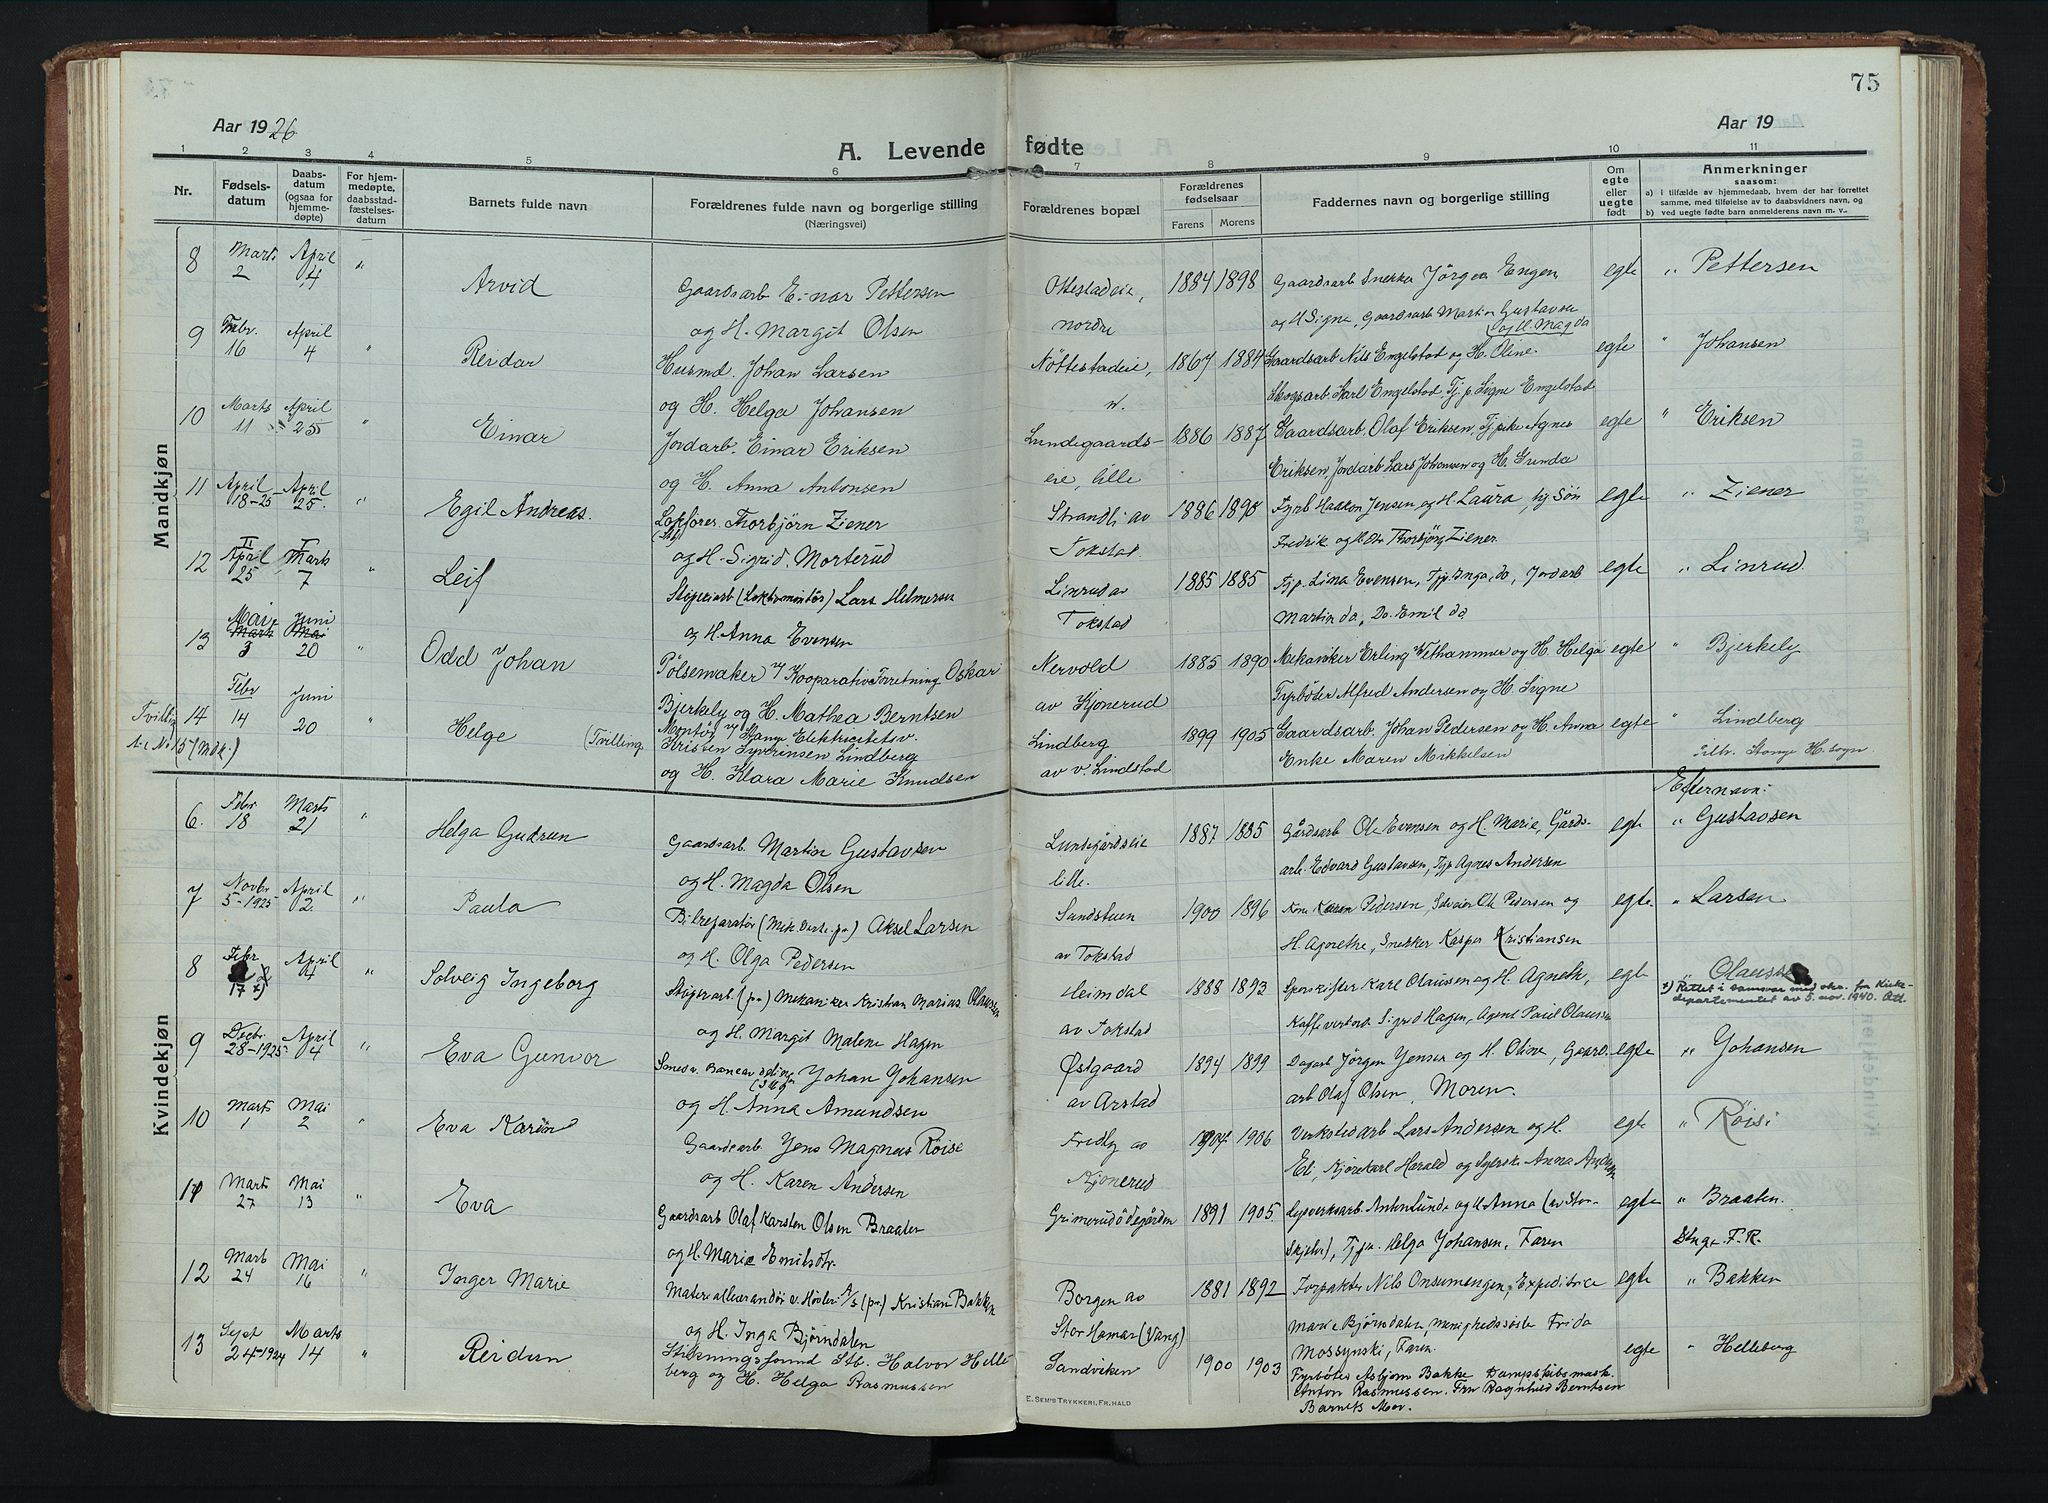 75
Aar 1926
Aar 19
A. Levende fødte
1 2 3 4 5 6 7 8 9 10 11
Nr.
Fødselsdatum
Daabsdatum (ogsaa for hjemmedøpte)
For hjemmedøpte, daabsstadfæstelsesdatum
Barnets fulde navn
Forældrenes fulde navn og borgerlige stilling
(Næringsvei)
Forældrenes bopæl
Forældrenes fødselsaar
Farens Morens
Faddernes navn og borgerlige stilling
Om egte eller uegte født
Anmerkninger
saasom:
a) i tilfælde av hjemmedaab, hvem der har forrettet samme, med tilføielse av to daabsvidners navn, og
b) ved uegte fødte barn anmelderens navn m. v.
Mandkjøn
8 Marts 2 April 4 " Arvid Gaardsarb Einar Pettersen Ottestadeie, 1884 1898 Gaardsarb Snekker Jörgen Engen egte " Pettersen
og H. Margit Olsen nordre og H Signe, Gaardsarb Martin Gustavsen og H. Magda
9 Febr. 16 April 4 " Reidar Husmd. Johan Larsen Nöttestadeie, 1867 1884 Gaardsarb Nils Engelstad og H. Oline. egte " Johansen
og H. Helga Johansen n. Skogsarb Karl Engelstad, Tj.p. Signe Engelstad
10 Marts 11 April 25 " Einar Jordarb. Einar Eriksen Lundegaards- 1886 1887 Gaardsarb. Olaf Eriksen, Tjpike Agnes egte " Eriksen
og H. Anna Antonsen eie, lille Eriksen, Jordarb Lars Johansen og H. Gunda
11 April 18-25 April 25. " Egil Andreas. Lokfører Thorbjörn Ziener Strandli av 1886 1890 Fyrb Haakon Jensen og H Laura, egte " Ziener
(Stb) og H. Sigrid Morterud Tokstad Fredrik og Thorbjörg Ziener
12 II April 25 I Marts 7 " Leif Støperiarb (Lokomontør) Lars Helmersen Linrud av 1885 1885 Tjp. Lina Evensen, Tjp. Inga, do, Jordarb egte " Linrud.
og H. Anna Evensen Tokstad Martin do, Do. Emil do
13 Mai Marts 3 Juni Mai 20 " Odd Johan Pölsemaker v/ Kooperativ Forretning Oskar Nervold 1885 1890 Mekaniker Erling Wethammer og H. Helga egte " Bjerkely
Bjerkely og H. Mathea Berntsen av Kjonerud Fyrböter Alfred Andersen og H. Signe
Tvilling 14 Febr 14 Juni 20 " Helge (Tvilling Montør v/ Stange Elektricitetsv. Lindberg 1899 1905 Gaardsarb. Johan Pedersen og H. Anna egte " Lindberg
til No 15 (Mdk.) Kristen Syverinsen Lindberg av v. Lindstad Enke Maren Mikkelsen Tilh. Stange H. sogn.
og H. Klara Marie Knudsen
Kvindekjøn
Efternavn:
6. Febr 18 Marts 21 " Helga Gudrun Gaardsarb. Martin Gustavsen Lundegårdseie 1887 1885 Gårdsarb Ole Evensen og H. Marie, Gårds- egte " Gustavsen
og H. Magda Olsen lille. arb. Edvard Gustavsen, Tjp Agnes Andersen
7 Novbr 5-1925 April 2. " Paula Bilreparatør (Mek Verksp.) Aksel Larsen Sandstuen 1900 1896 Kone Karen Pedersen, Ole Pedersen og egte " Larsen
og H. Olga Pedersen av Tokstad H. Agnethe, Snekker Kasper Kristiansen
8 Febr 17 x) April 4 " Solveig Ingeborg Støperiarb (pr) Mekaniker Kristian Marius Olaussen Heimdal 1888 1893 Sporskifter Karl Olaussen og H. Agneth, egte Olaussen
og H. Margit Malene Hagen av Tokstad Kaffevertsk Sigrid Hagen, Agent Paul Olaussen x) Rettet i samsvar med skr. fra Kirkedepartementet av 5. nov. 1940.
9 Decbr 28-1925 April 4 " Eva Gunvor Smed v. Baneavdeling Johan Johansen Østgaard 1894 1899 Dagarb Jörgen Jensen og H. Oline, Gaard- egte " Johansen
(Stb) og H. Anna Amundsen av Arstad arb Olaf Olsen, Moren.
10 Marts 1 Mai 2 " Eva Karin Gaardsarb Jens Magnus Röisi Fredly av 1904 1906 Verkstedarb Lars Andersen og H. egte " Röisi
og H. Karen Andersen Kjonerud El, Kjörekarl Harald og Syerske Anna Andersen
11 Marts 27 Mai 13 " Eva Gaardsarb Olaf Karsten Olsen Braaten Grimerudödegården 1891 1905. Lysverksarb. Anton Lunde og H Anna egte " Braaten.
og H. Marie Emilsdtr. Skjelve), Tjp. Helga Johansen, Faren Stnge. F. R.
12 Marts 24 Mai 16 " Inger Marie Materialleverandör v. A/S (pr.) Kristian Bakken Borgen av 1881 1892 Forpakter Nils Onsumengen, Expeditrice egte " Bakken
og H. Inga Bjørndalen Stor Hamar (Vang) Marie Bjørndalen, menighedssöster Frida
Mossynski, Faren.
13 Sept 24-1924 Marts 14 " Reidun Stikningsformd Stb. Halvor Helle- Sandviken 1900 1903 Fyrbøter Asbjørn Bakke Dampskibsmask. egte " Helleberg
berg og H. Helga Rasmussen Anton Rasmussen. Fru Ragnhild Berntsen
Barnets Mor.
E. SEM'S TRYKKERI, FR. HALD